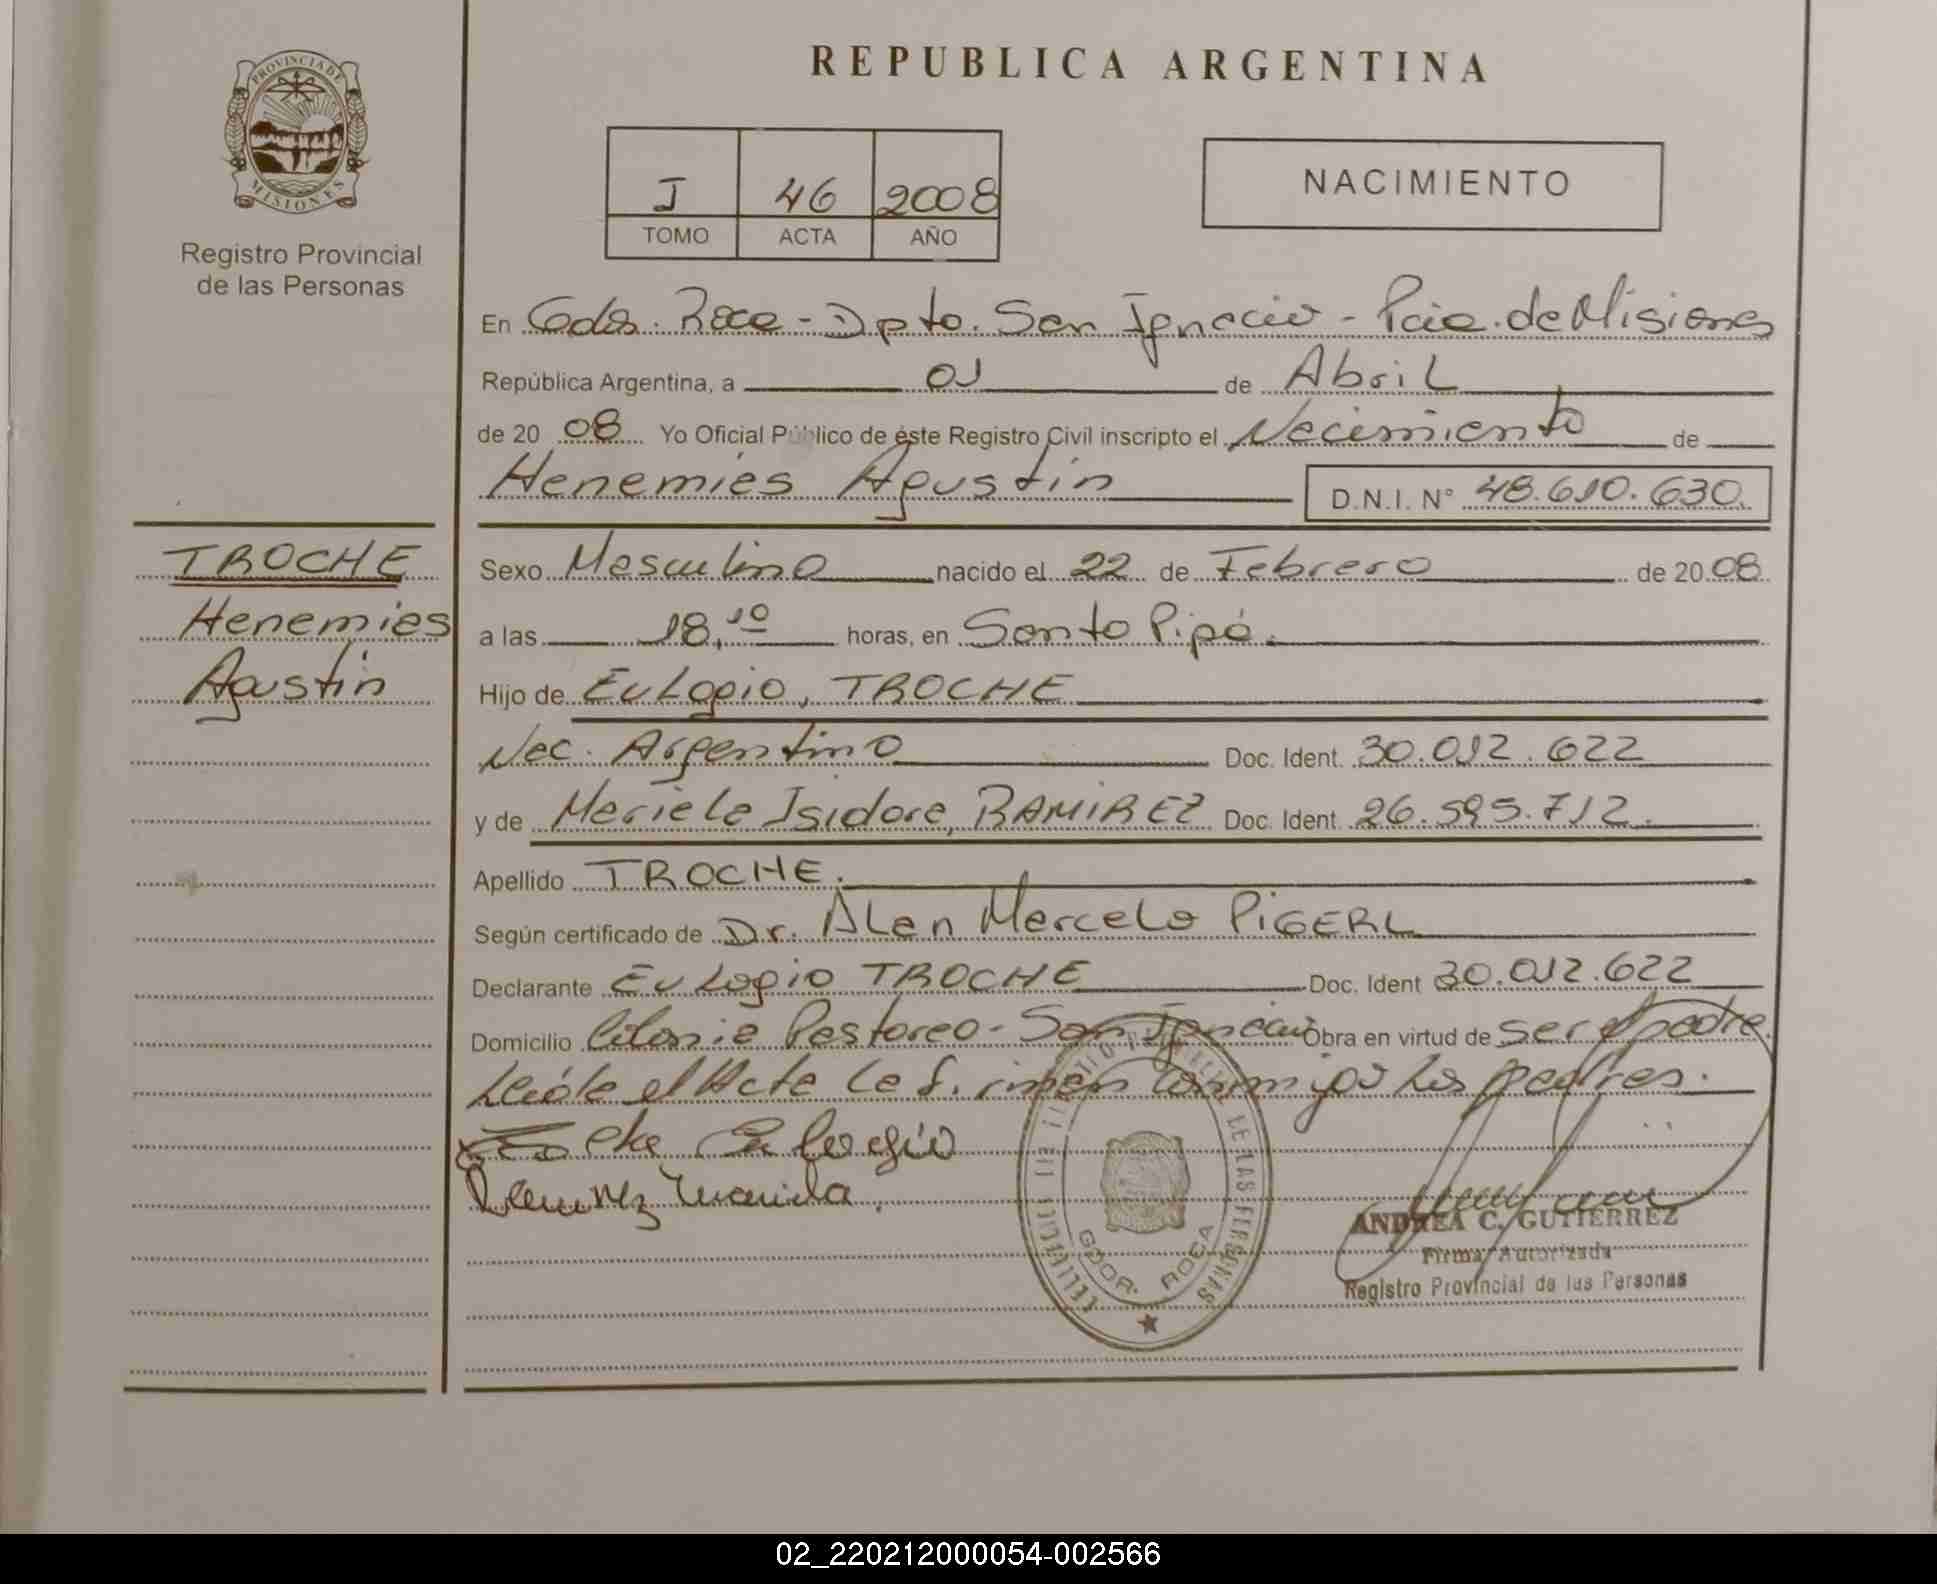 PROVINCIA DE
MISIONES
Registro Provincial
de las Personas
REPUBLICA ARGENTINA
I 46 2008
TOMO ACTA AÑO
NACIMIENTO
En Gdor. Roca - Dpto. San Ignacio - Pcia. de Misiones
República Argentina, a 01 de Abril
de 20 08 Yo Oficial Público de éste Registro Civil inscripto el Nacimiento de
Henemies Agustín D.N.I. N° 48.610.630.
TROCHE
Henemies
Agustín
Sexo Masculino nacido el 22 de Febrero de 20 08
a las 18,10 horas, en Santo Pipó.
Hijo de Eulogio, TROCHE
Nac. Argentino Doc. Ident. 30.012.622
y de Mariela Isidora, RAMIREZ Doc. Ident. 26.595.712.
Apellido TROCHE.
Según certificado de Dr. Alan Marcelo PIGERL
Declarante Eulogio TROCHE Doc. Ident 30.012.622
Domicilio Colonia Pastoreo - San Ignacio Obra en virtud de ser el padre.
Leída el Acta la firman conmigo los padres.
Eulogio
Ramirez Mariela
GDOR. ROCA
DE LAS PERSONAS
ANDREA C. GUTIERREZ
Firma Autorizada
Registro Provincial de las Personas
02_220212000054-002566